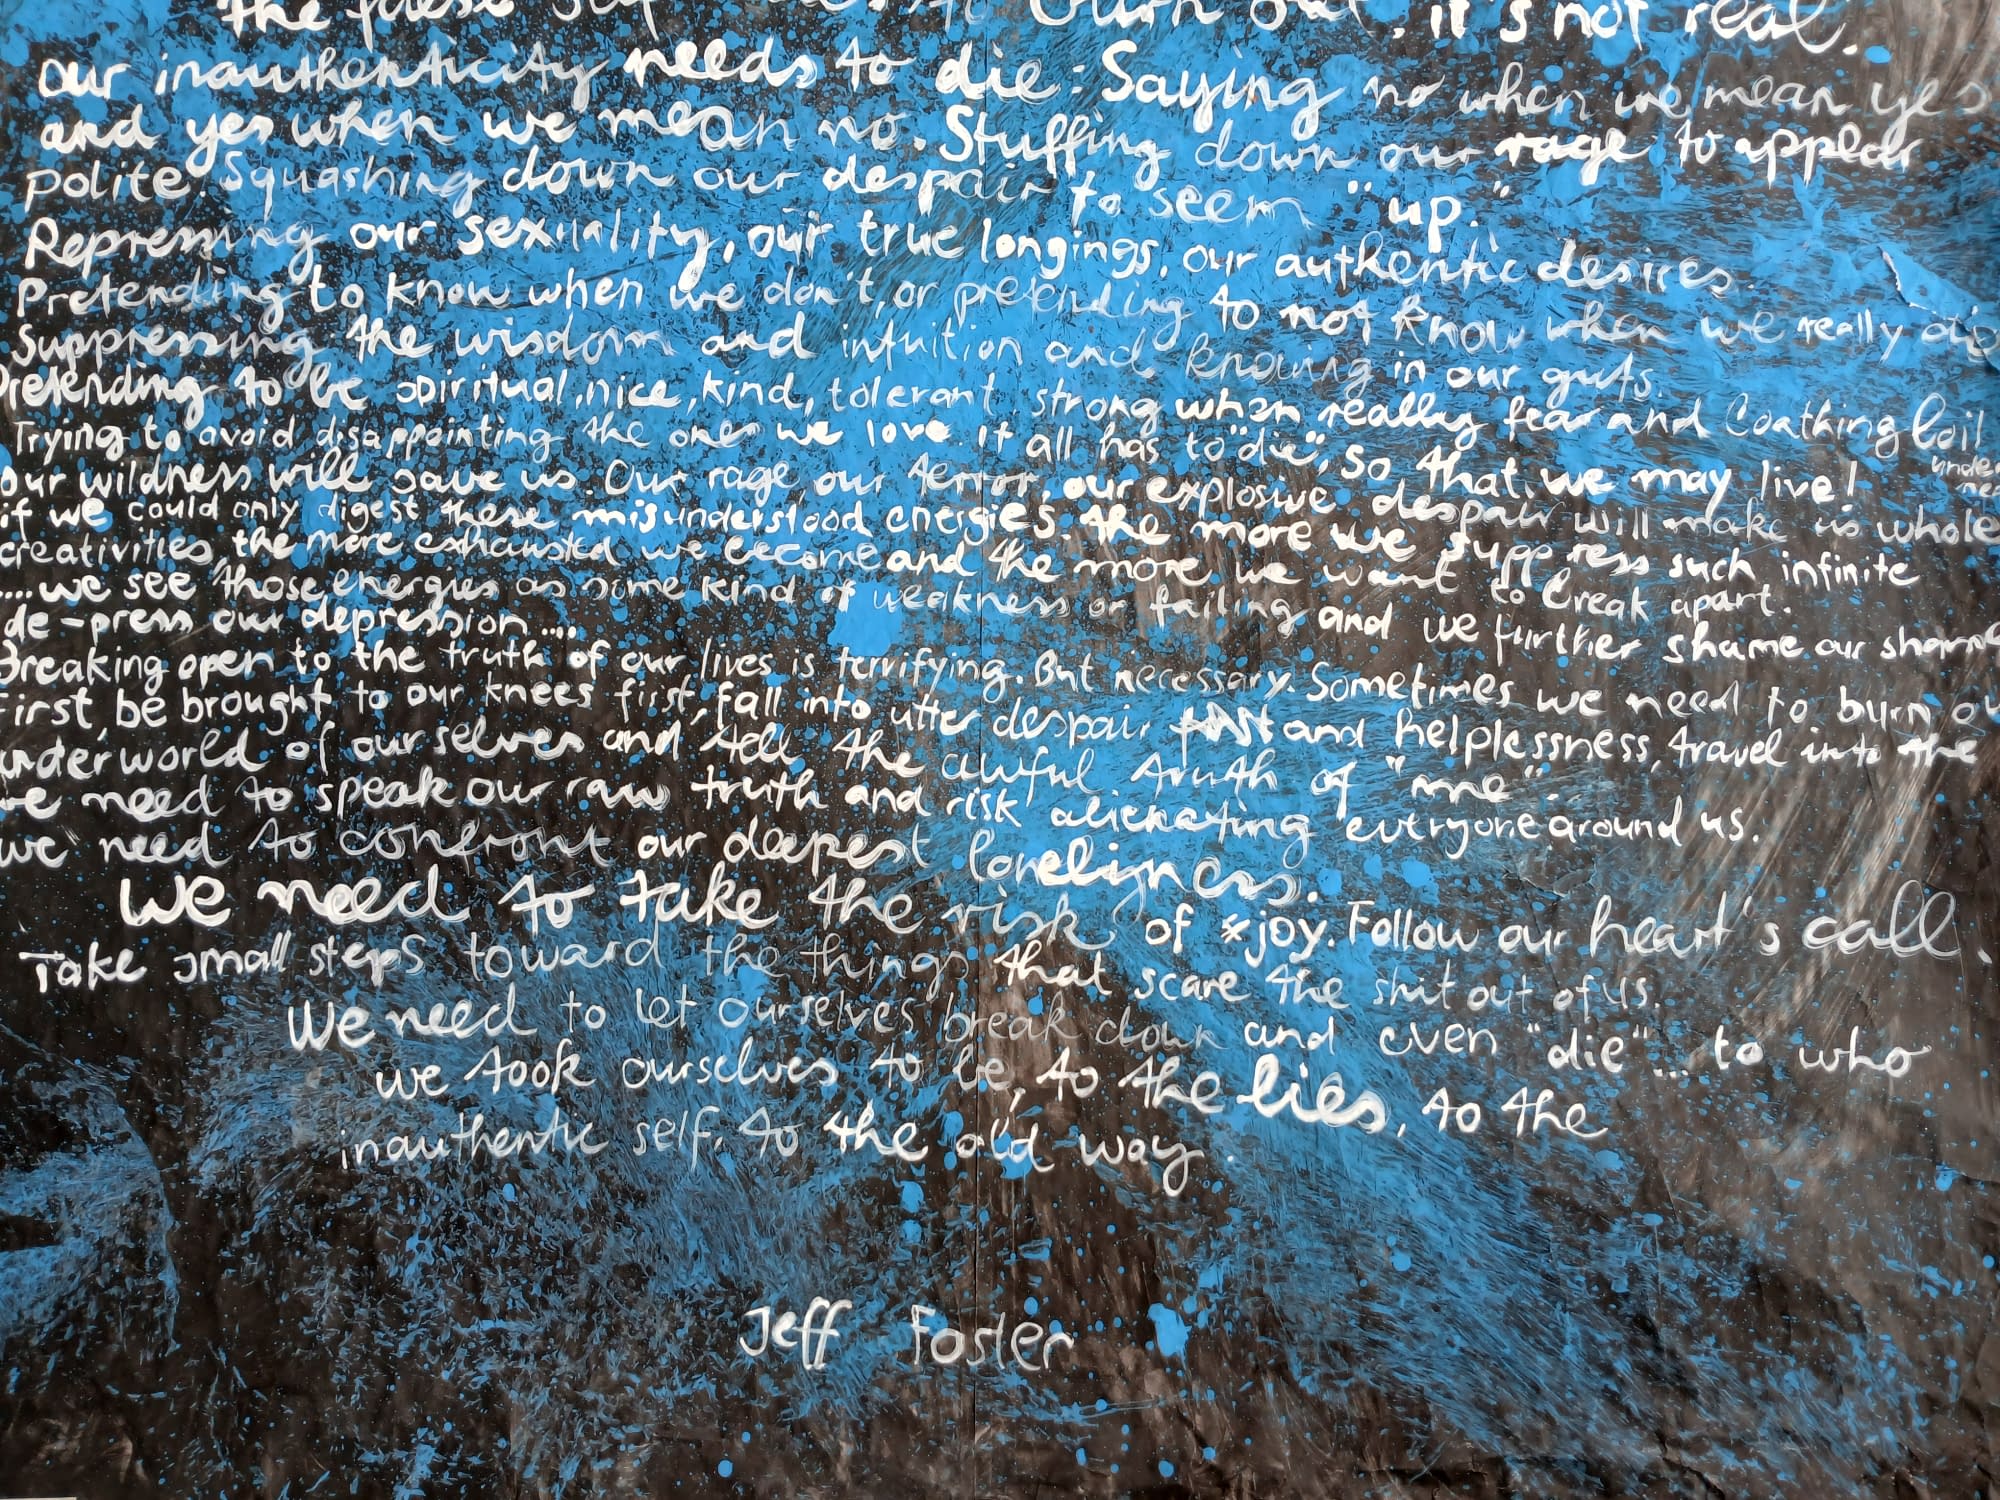 the false self burn out, it's not real.
our inauthenticity needs to die: Saying no when we mean yes
and yes when we mean no. Stuffing down our rage to appear
polite. Squashing down our despair to seem "up."
Repressing our sexuality, our true longings, our authentic desires.
Pretending to know when we don't, or pretending to not know when we really did
Suppressing the wisdom and intuition and knowing in our guts.
Pretending to be spiritual, nice, kind, tolerant, strong when really fear and loathing boil under
Trying to avoid disappointing the ones we love. It all has to "die", so that we may live!
our wildness will save us. Our rage, our terror, our explosive despair will make us whole
if we could only digest these misunderstood energies. the more we suppress such infinite
creativities, the more exhausted we become and the more we want to break apart.
....we see those energies as some kind of weakness or failing and we further shame our shame
de-press our depression....
Breaking open to the truth of our lives is terrifying. But necessary. Sometimes we need to burn
First, be brought to our knees first, fall into utter despair and helplessness, travel into the
underworld of ourselves and tell the awful truth of "me".
we need to speak our raw truth and risk alienating everyone around us.
we need to confront our deepest loneliness.
We need to take the risk of joy. Follow our heart's call.
Take small steps toward the things that scare the shit out of us.
We need to let ourselves break down and even "die"... to who
we took ourselves to be, to the lies, to the
inauthentic self. to the old way.
Jeff Foster